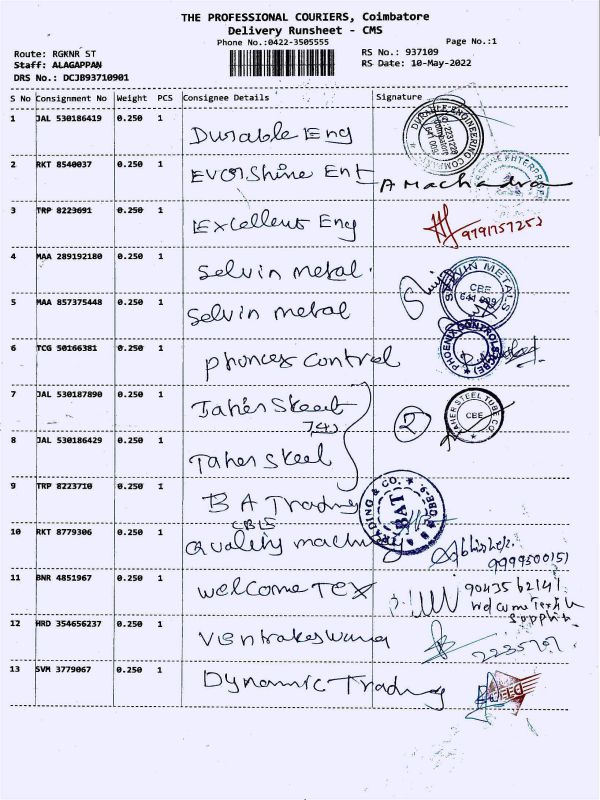 THE PROFESSIONAL COURIERS, Coimbatore
Delivery Runsheet - CMS
Phone No.:0422-3505555 Page No.:1
Route: RGKNR ST RS No.: 937109
Staff: ALAGAPPAN RS Date: 10-May-2022
DRS No.: DCJB93710901
S No Consignment No Weight PCS Consignee Details Signature
1 JAL 530186419 0.250 1 Durable Eng
DURABLE ENGINEERING COMPANY
2 RKT 8540037 0.250 1 Evershine Ent A Machadra
3 TRP 8223691 0.250 1 Excellent Eng 9791757252
4 MAA 289192180 0.250 1 Selvin metal.
SELVIN METALS CBE 641 009
5 MAA 857375448 0.250 1 Selvin metal
6 TCG 50166381 0.250 1 phonces control
PHOENIX CONTROLS (CBE)
7 JAL 530187890 0.250 1 Taher Steel
TAHER STEEL TUBE CO. CBE
2
8 JAL 530186429 0.250 1 Taher Steel
9 TRP 8223710 0.250 1 B A Trading
TRADING & CO. BAT CBE-9.
10 RKT 8779306 0.250 1 Quality machinery Abhishek.
9999500151
11 BNR 4851967 0.250 1 welcome TEX 9043562141
Welcome Textile
Supplier
12 HRD 354656237 0.250 1 Venkateswara
13 SVM 3779067 0.250 1 Dynamic Trading